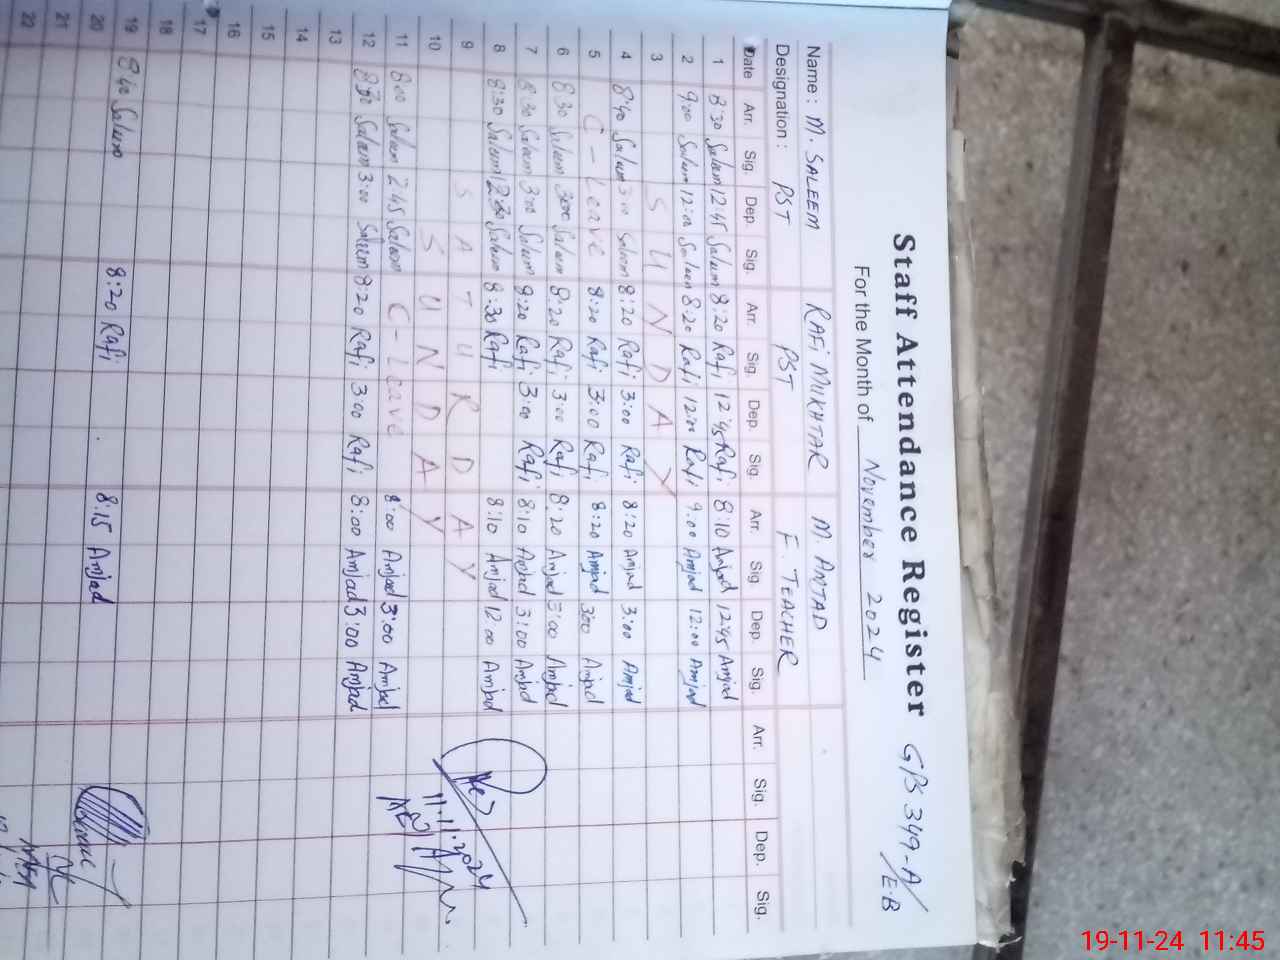 Staff Attendance Register GPS 349-A/E.B
For the Month of November 2024
Name : M. SALEEM RAFI MUKHTAR M. AMJAD
Designation : PST PST F. TEACHER
Date Arr. Sig. Dep. Sig. Arr. Sig. Dep. Sig. Arr. Sig. Dep. Sig. Arr. Sig. Dep. Sig.
1 8:30 Saleem 12:45 Saleem 8:20 Rafi 12:45 Rafi 8:10 Amjad 12:45 Amjad
2 9:00 Saleem 12:00 Saleem 8:20 Rafi 12:00 Rafi 9:00 Amjad 12:00 Amjad
3 S U N D A Y
4 8:40 Saleem 3:00 Saleem 8:20 Rafi 3:00 Rafi 8:20 Amjad 3:00 Amjad
5 C - Leave 8:20 Rafi 3:00 Rafi 8:20 Amjad 3:00 Amjad
6 8:30 Saleem 3:00 Saleem 8:20 Rafi 3:00 Rafi 8:20 Amjad 3:00 Amjad
7 8:30 Saleem 3:00 Saleem 8:20 Rafi 3:00 Rafi 8:10 Amjad 3:00 Amjad
8 8:30 Saleem Saleem 8:30 Rafi 8:10 Amjad 12:00 Amjad
9 S A T U R D A Y
10 S U N D A Y
11 8:00 Saleem 2:45 Saleem C - Leave 8:00 Amjad 3:00 Amjad
11.11.2024
12 Saleem 3:00 Saleem 8:20 Rafi 3:00 Rafi 8:00 Amjad 3:00 Amjad
13
14
15
16
17
18
19 8:40 Saleem 8:20 Rafi 8:15 Amjad
20
21
22
19-11-24 11:45